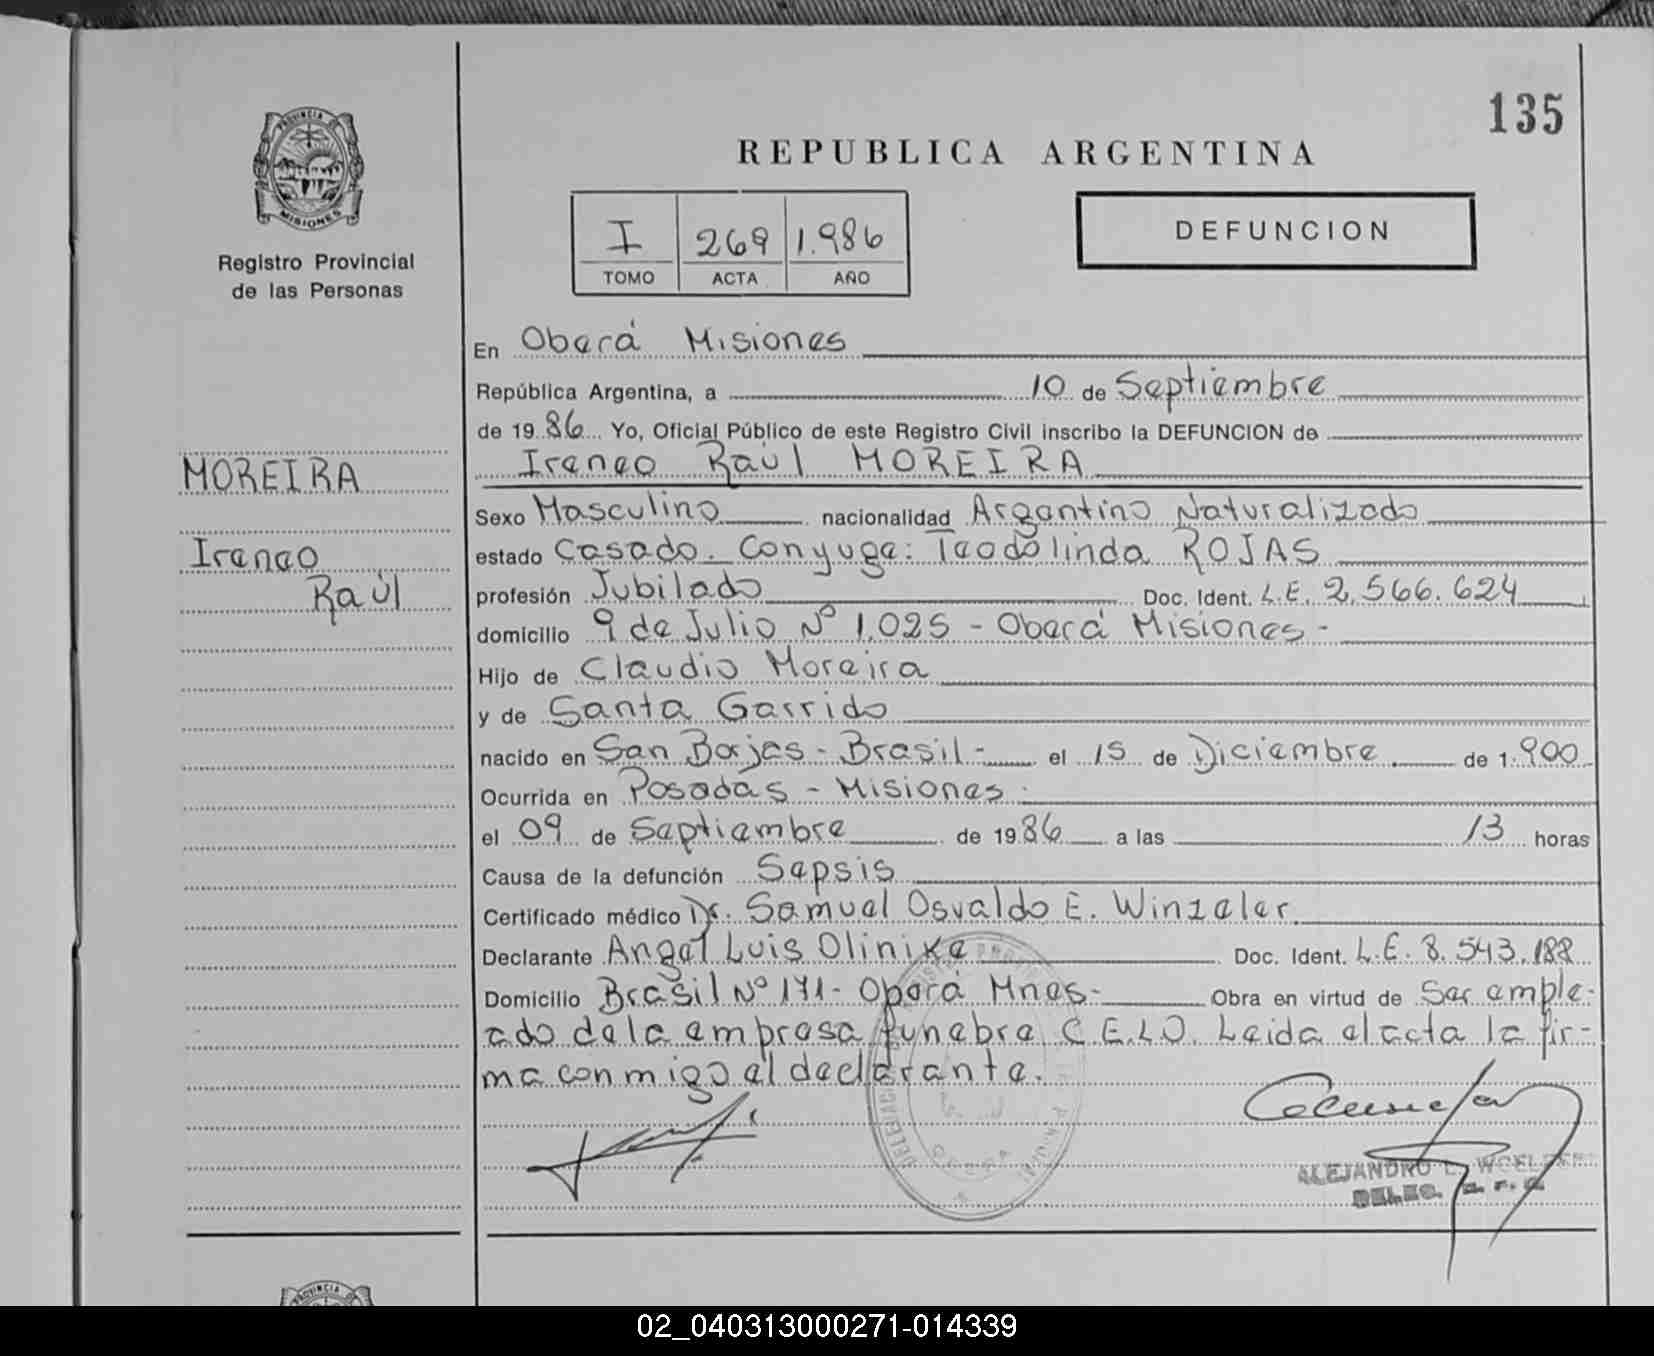 135
REPUBLICA ARGENTINA
PROVINCIA DE
MISIONES
Registro Provincial
de las Personas
I 269 1.986
TOMO ACTA AÑO
DEFUNCION
MOREIRA
Ireneo
Raúl
En Oberá Misiones
República Argentina, a 10 de Septiembre
de 1986 Yo, Oficial Público de este Registro Civil inscribo la DEFUNCION de
Ireneo Raúl MOREIRA
Sexo Masculino nacionalidad Argentino Naturalizado
estado Casado. Conyuge: Teodolinda ROJAS
profesión Jubilado Doc. Ident. L.E. 2.566.624
domicilio 9 de Julio Nº 1.025 - Oberá Misiones -
Hijo de Claudio Moreira
y de Santa Garrido
nacido en San Borjas - Brasil - el 15 de Diciembre de 1.900
Ocurrida en Posadas - Misiones
el 09 de Septiembre de 1986 a las 13 horas
Causa de la defunción Sepsis
Certificado médico Dr. Samuel Osvaldo E. Winzeler
Declarante Angel Luis Olinike Doc. Ident. L.E. 8.543.188
Domicilio Brasil Nº 171 - Oberá Mnes - Obra en virtud de Ser emple-
ado de la empresa funebre C.E.L.O. Leida el acta la fir-
ma conmigo el declarante.
ALEJANDRO
PROVINCIA
02_040313000271-014339